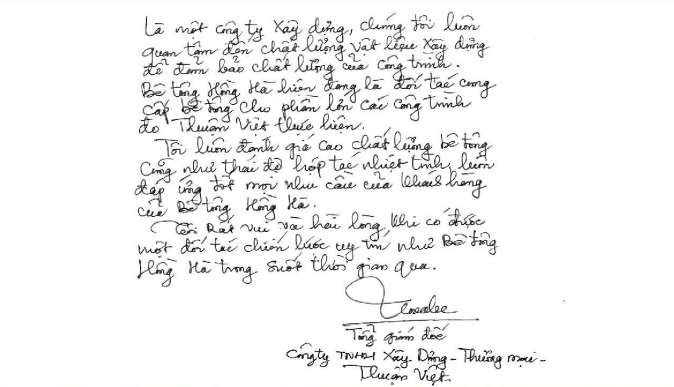 Là một công ty Xây dựng, chúng tôi luôn
quan tâm đến chất lượng vật liệu Xây dựng
để đảm bảo chất lượng của công trình.
Bê tông Hồng Hà hiện đang là đối tác cung
cấp bê tông cho phần lớn các công trình
do Thuận Việt thực hiện.
Tôi luôn đánh giá cao chất lượng bê tông
Cũng như thái độ hợp tác nhiệt tình, luôn
đáp ứng tốt mọi nhu cầu của khách hàng
của Bê tông Hồng Hà.
Tôi Rất vui và hài lòng khi có được
một đối tác chiến lược uy tín như Bê tông
Hồng Hà trong suốt thời gian qua.
Tổng giám đốc
Công ty TNHH Xây Dựng - Thương mại -
Thuận Việt.